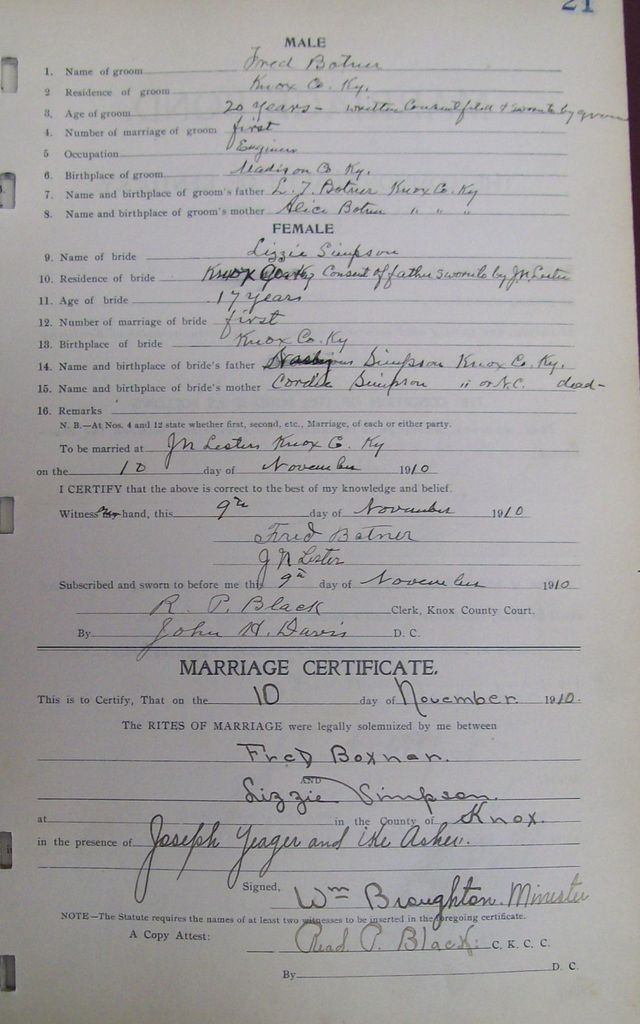 21
MALE
1. Name of groom Fred Botner
2 Residence of groom Knox Co. Ky.
3. Age of groom 20 years - written Consent filed & sworn to by groom
4. Number of marriage of groom first
5 Occupation Engineer
6. Birthplace of groom Madison Co Ky.
7. Name and birthplace of groom's father L. T. Botner Knox Co. Ky
8. Name and birthplace of groom's mother Alice Botner " " "
FEMALE
9. Name of bride Lizzie Simpson
10. Residence of bride Knox Co. Ky Consent of father sworn to by J N Lester
11. Age of bride 17 years
12. Number of marriage of bride first
13. Birthplace of bride Knox Co. Ky
14. Name and birthplace of bride's father Simpson Knox Co. Ky.
15. Name and birthplace of bride's mother Cordie Simpson " or N.C. dead-
16. Remarks
N. B.—At Nos. 4 and 12 state whether first, second, etc., Marriage, of each or either party.
To be married at J N Lesters Knox Co. Ky
on the 10 day of November 1910
I CERTIFY that the above is correct to the best of my knowledge and belief.
Witness hand, this 9th day of November 1910
Fred Botner
J N Lester
Subscribed and sworn to before me this 9th day of November 1910
R. P. Black Clerk, Knox County Court.
By John H. Davis D. C.
MARRIAGE CERTIFICATE.
This is to Certify, That on the 10 day of November. 1910.
The RITES OF MARRIAGE were legally solemnized by me between
Fred Boxnar.
AND
Lizzie Simpson.
at in the County of Knox.
in the presence of Joseph Yeager and Ike Asher.
Signed, Wm Broughton. Minister
NOTE—The Statute requires the names of at least two witnesses to be inserted in the foregoing certificate.
A Copy Attest: Read. P. Black: C. K. C. C.
By D. C.